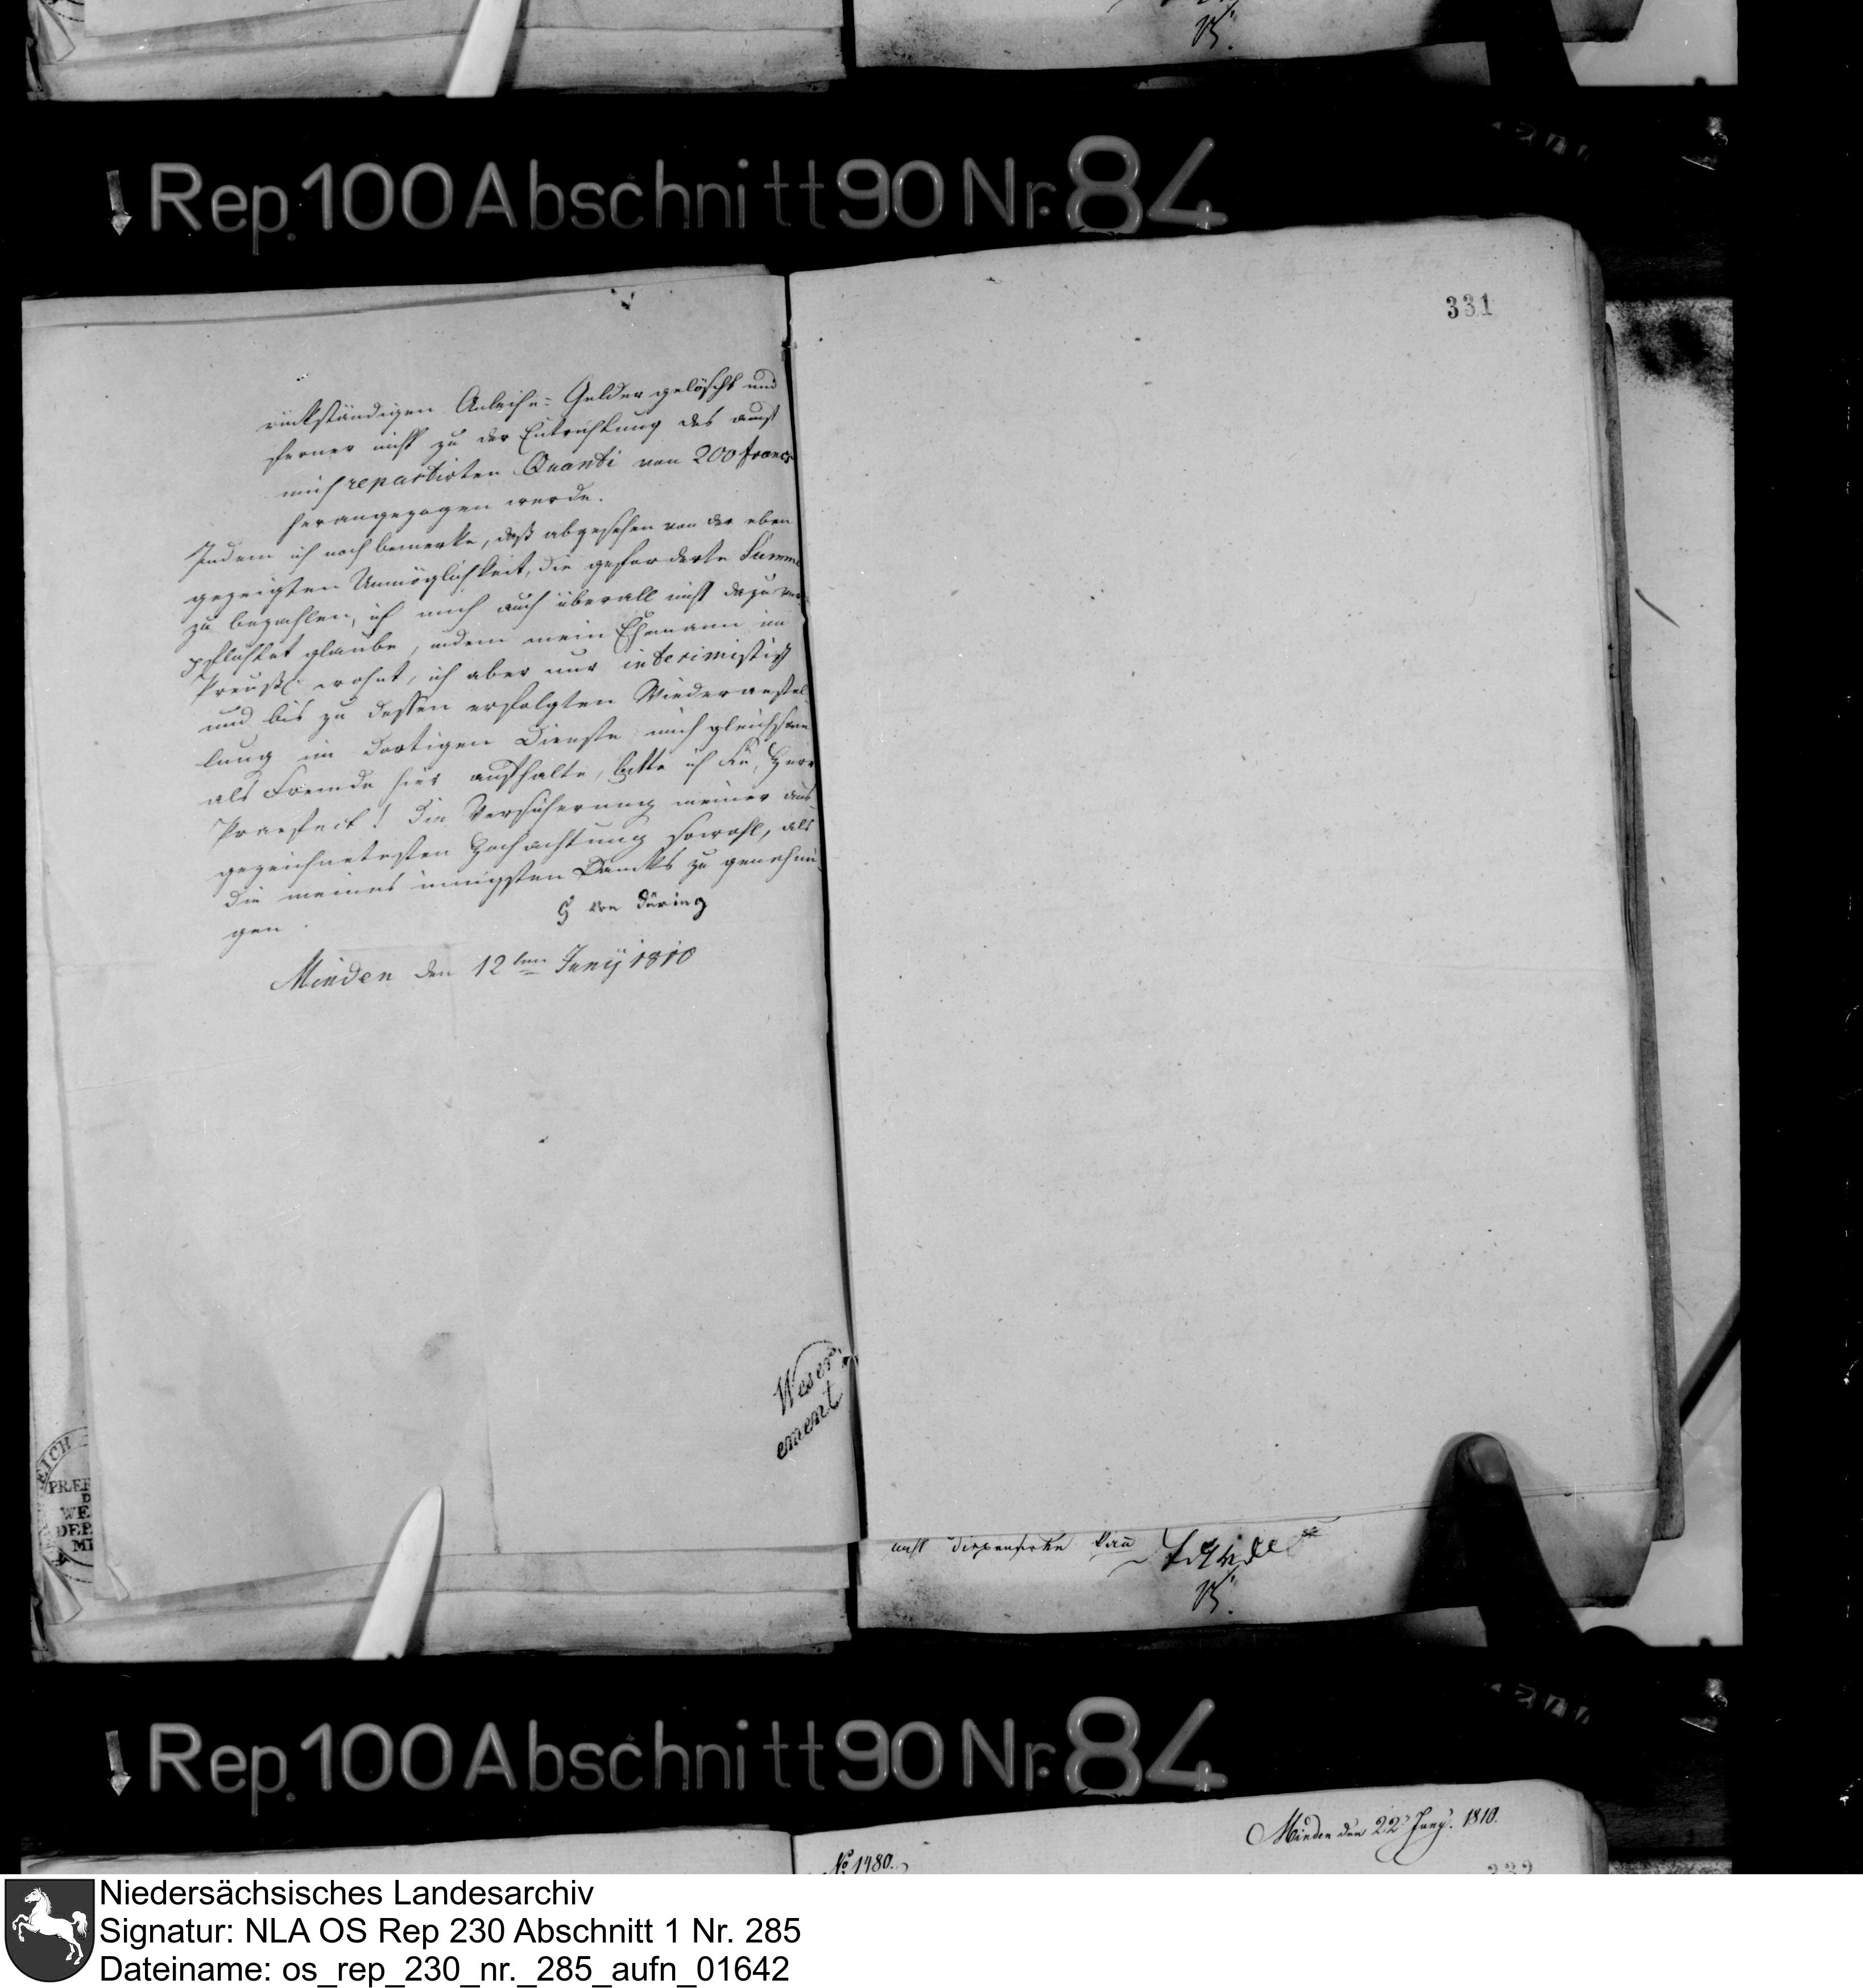 B.
Rep. 100 Abschnitt 90 Nr. 84
331
rückständigen Anleihe-Gelder gelöscht und
ferner nicht zu der Entrichtung des auf
mich repartirten Quanti von 200 francs
herangezogen werde.
Indem ich noch bemerke, daß abgesehen von der eben
gezeigten Unmöglichkeit, die geforderte Summe
zu bezahlen, ich mich auch überall nicht dazu ver-
pflichtet glaube, indem mein Ehemann im
Preuß. wohnt, ich aber nur interimistisch
und bis zu dessen erfolgten Wiederanstel-
lung im dortigen Dienste mich gleichsam
als Fremde hier aufhalte, bitte ich Sie, Herr
Praefect! die Versicherung meiner aus-
gezeichnetesten Hochachtung sowohl, als
die meines innigsten Dancks zu genehmi-
gen.
von Düring
Minden den 12ten Juny 1810
Weser
ement
EICH
PRÆF
D
WE
DEP.
MI
nicht dispensirte kan
B.
Rep. 100 Abschnitt 90 Nr. 84
Minden den 22 Juny. 1810.
No 1480.
332
Niedersächsisches Landesarchiv
Signatur: NLA OS Rep 230 Abschnitt 1 Nr. 285
Dateiname: os_rep_230_nr._285_aufn_01642